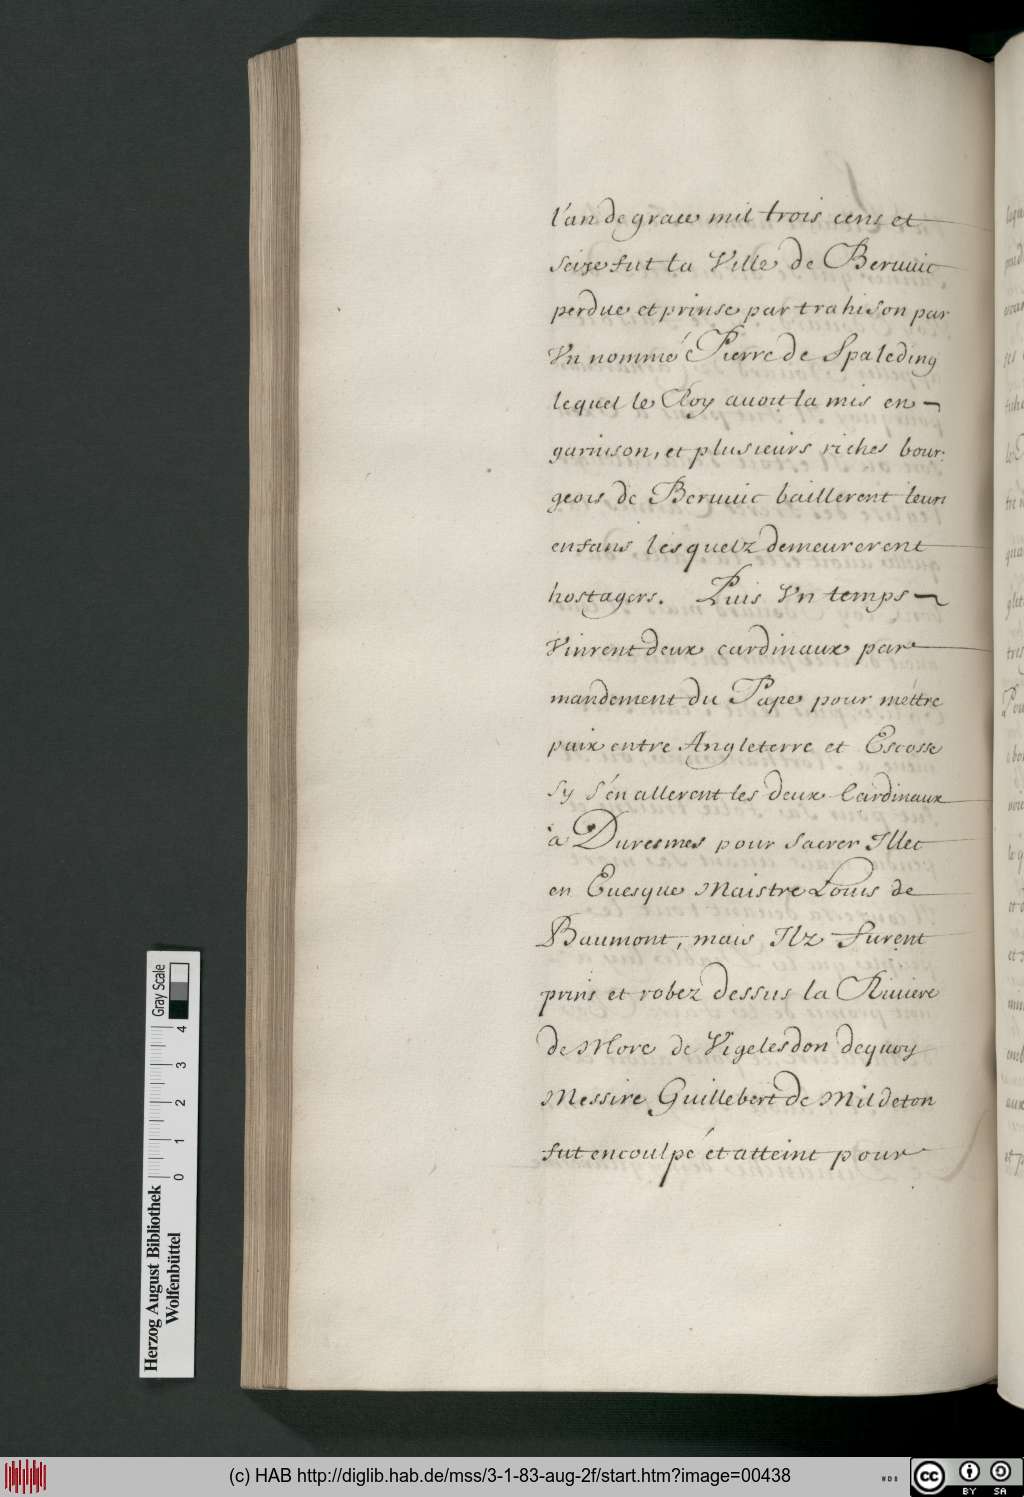 l'an de grace mil trois cens et
seize fut la Ville de Beruuic
perdue et prinse par trahison par
Vn nommé Pierre de Spaleding
lequel le Roy auoit la mis en
garnison, et plusieurs riches bour:
geois de Beruuic baillerent leurs
enfans lesquelz demeurerent
hostagers. Puis Vn temps
Vinrent deux cardinaux par
mandement du Pape pour mettre
paix entre Angleterre et Escosse
sy s'en allerent les deux Cardinaux
a Duresmes pour sacrer Illec
en Euesque Maistre Louis de
Baumont, mais Ilz furent
prins et robez dessus la Riuiere
de More de Vigelesdon dequoy
Messire Guillebert de Mildeton
fut encoulpé et atteint pour
Herzog August Bibliothek
Wolfenbüttel
0 1 2 3 4
Gray Scale
(c) HAB http://diglib.hab.de/mss/3-1-83-aug-2f/start.htm?image=00438
cc BY SA